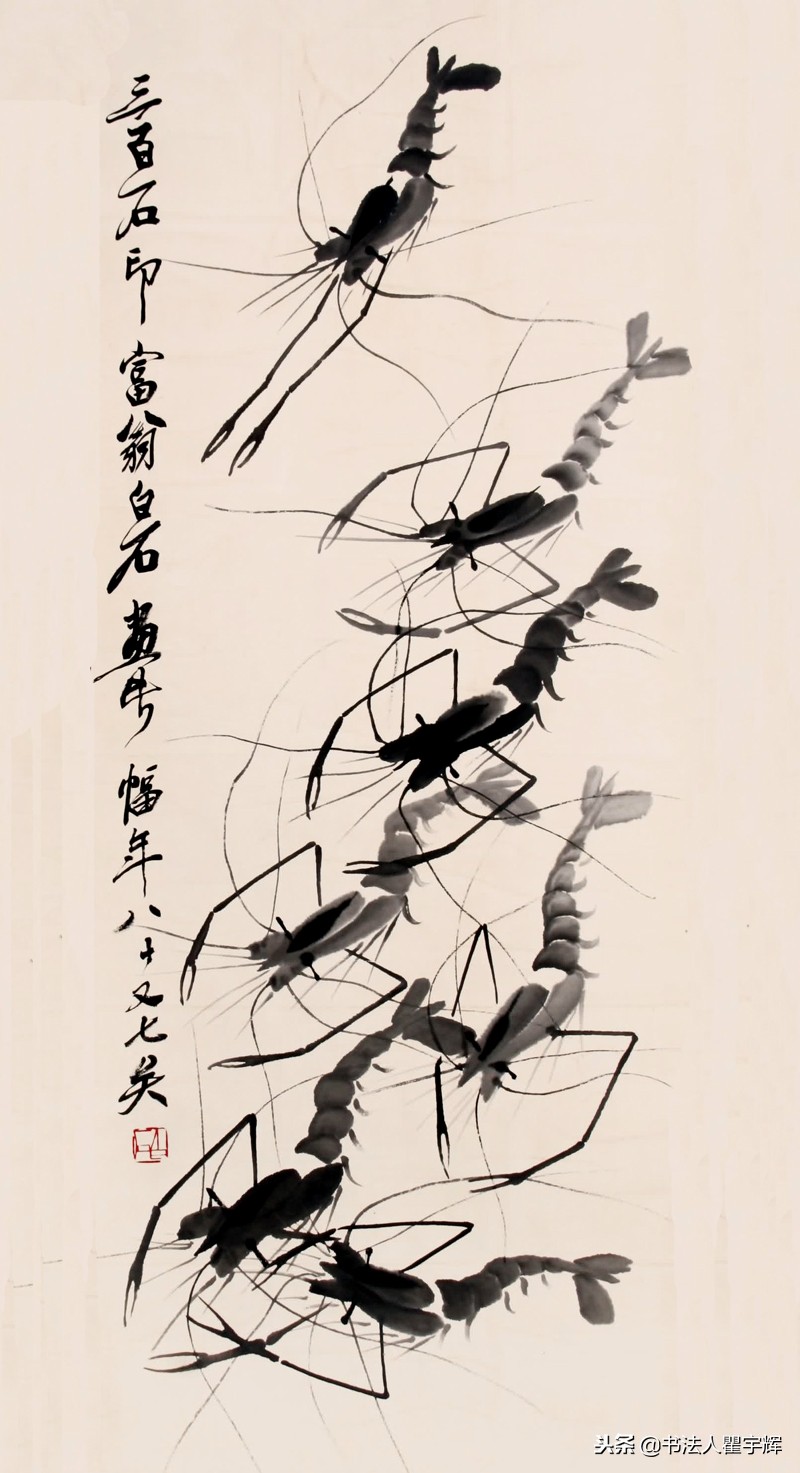 三百石印富翁白石畫第幅年八十又七矣
头条 @书法人瞿宇辉